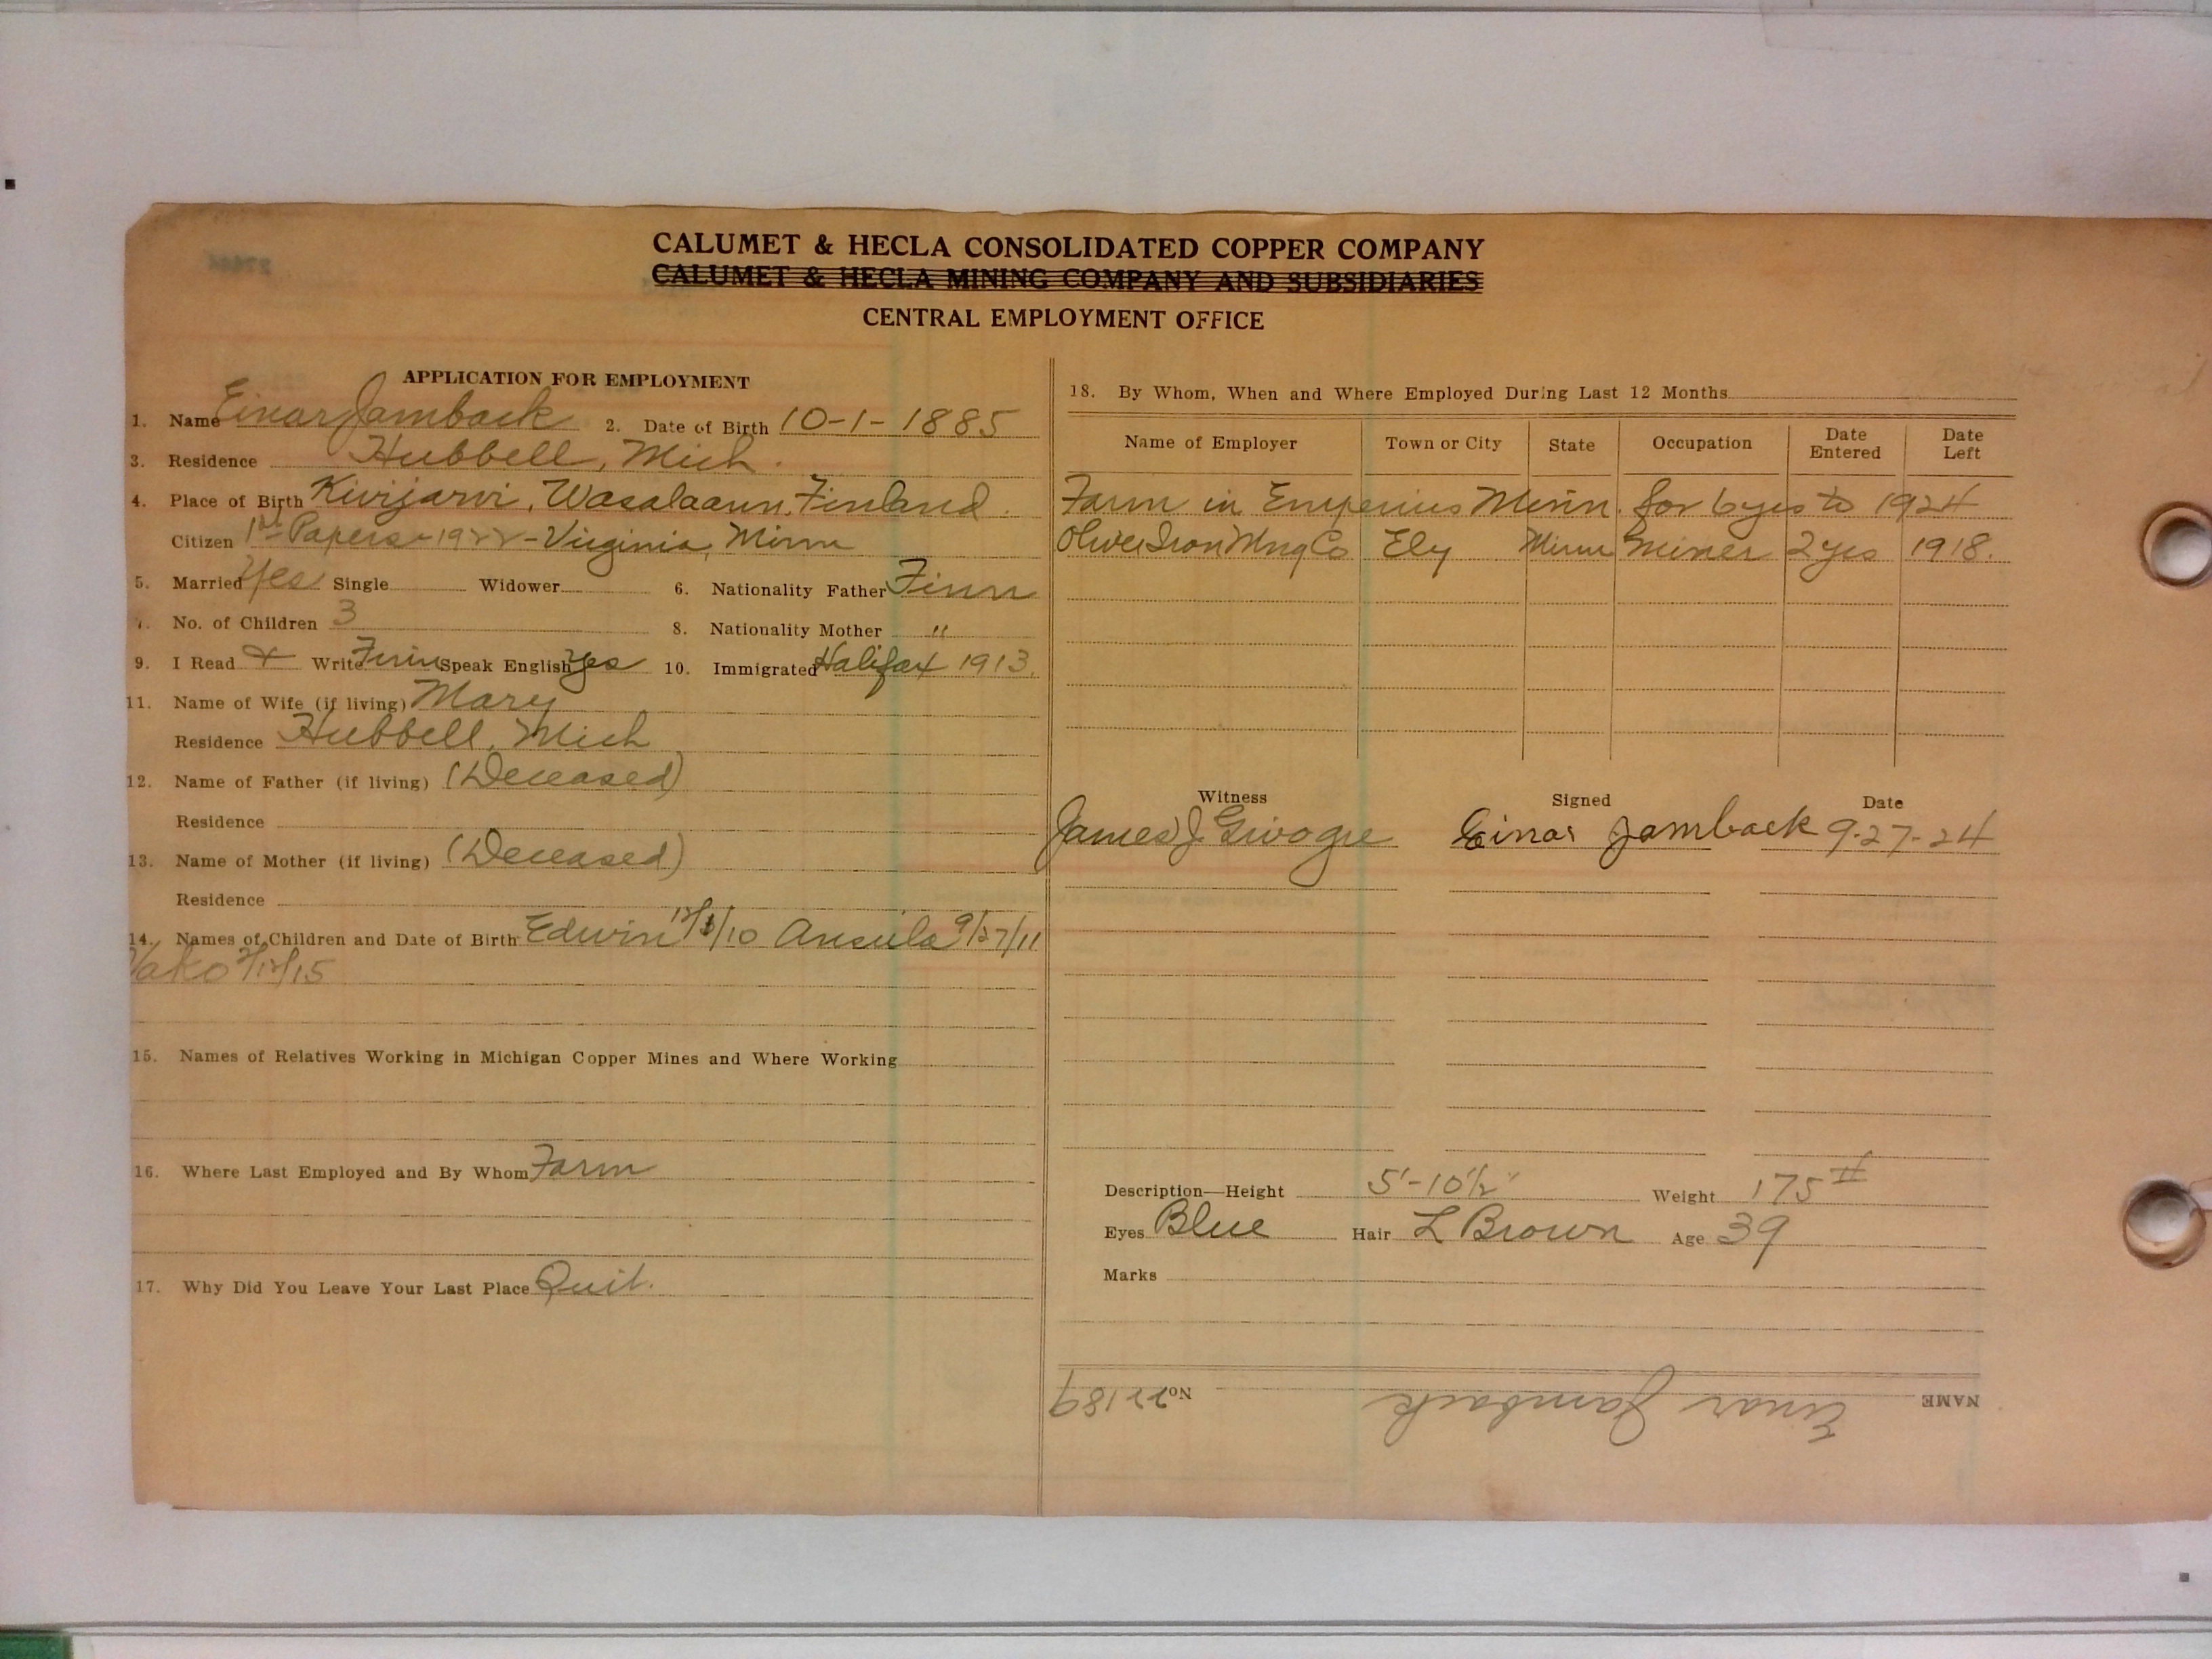 CALUMET & HECLA CONSOLIDATED COPPER COMPANY
CALUMET & HECLA MINING COMPANY AND SUBSIDIARIES
CENTRAL EMPLOYMENT OFFICE
APPLICATION FOR EMPLOYMENT
1. Name Einar Jamback 2. Date of Birth 10-1-1885
3. Residence Hubbell, Mich.
4. Place of Birth Kivijarvi, Wasalaann, Finland.
Citizen 1st Papers - 1922 - Virginia, Minn
5. Married Yes Single Widower 6. Nationality Father Finn
7. No. of Children 3 8. Nationality Mother "
9. I Read + Write Finn Speak English Yes 10. Immigrated Halifax 1913.
11. Name of Wife (if living) Mary
Residence Hubbell, Mich
12. Name of Father (if living) (Deceased)
Residence
13. Name of Mother (if living) (Deceased)
Residence
14. Names of Children and Date of Birth Edwin /10 9/27/11
2/12/15
15. Names of Relatives Working in Michigan Copper Mines and Where Working
16. Where Last Employed and By Whom Farm
17. Why Did You Leave Your Last Place Quit.
18. By Whom, When and Where Employed During Last 12 Months
Name of Employer Town or City State Occupation Date Entered Date Left
Farm in Minn. for 6 yrs to 1924
Oliver Iron Mng Co Ely Minn Miner 2 yrs 1918.
Witness Signed Date
James J. Einar Jamback 9-27-24
Description—Height 5'-10 1/2" Weight 175 #
Eyes Blue Hair L Brown Age 39
Marks
NAME Einar Jamback No. 22189